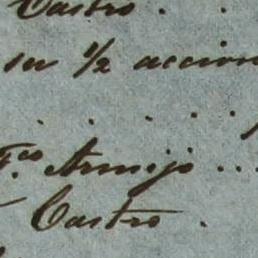 Castro .
su 1/2 accion
. . . .
Fco Armijo ...
Castro .